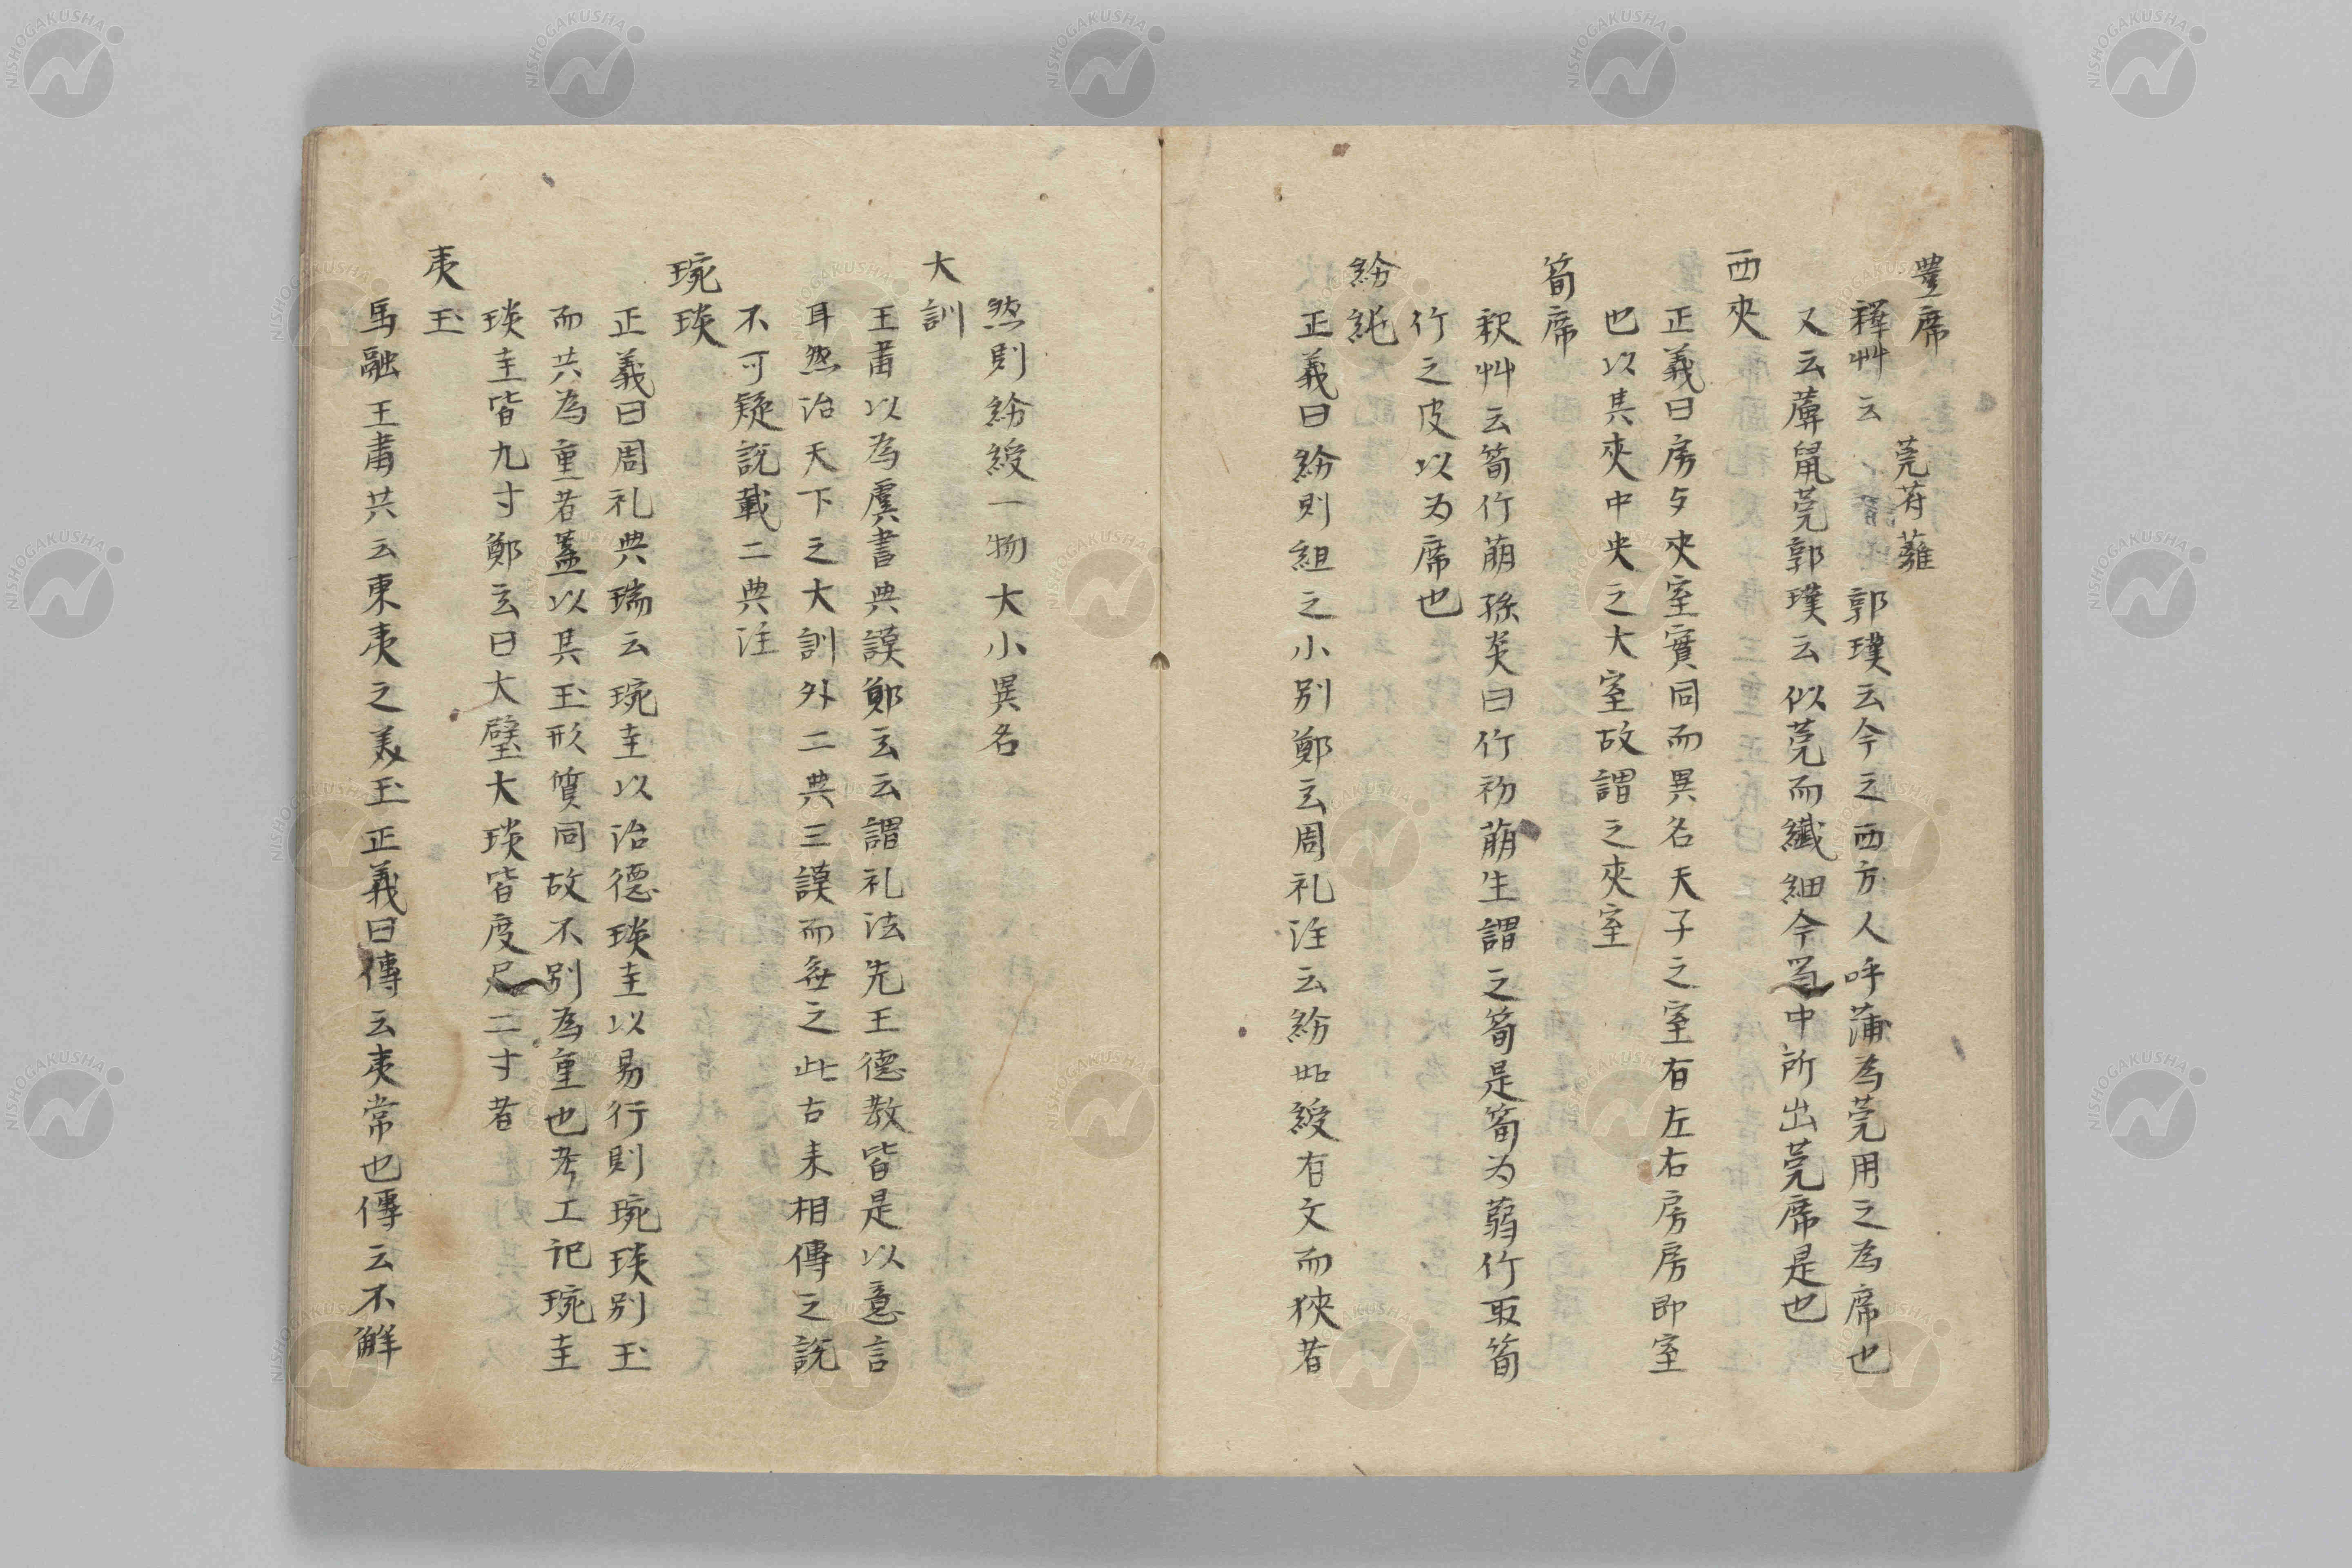 豊席
莞苻蘺
釋艸云　郭璞云今之西方人呼蒲為莞用之為席也
又云薡鼠莞郭璞云似莞而纖細今蜀中所出莞席是也
西夾
正義曰房与夾室實同而異名天子之室有左右房房即室
也以其夾中央之大室故謂之夾室
筍席
釈艸云筍竹萠孫炎曰竹初萠生謂之筍是筍为蒻竹取筍
竹之皮以为席也
紛純
正義曰紛則組之小別鄭玄周礼注云紛如綬有文而狹者
然則紛綬一物大小異名
大訓
王肅以為虞書典謨鄭玄云謂礼法先王德教皆是以意言
耳然治天下之大訓外二典三謨而無之此古来相傳之説
不可疑説載二典注
琬琰
正義曰周礼典瑞云琬圭以治德琰圭以易行則琬琰別玉
而共為重者蓋以其玉形質同故不別為重也考工記琬圭
琰圭皆九寸鄭玄曰大璧大琰皆度尺二寸者
夷玉
馬融王肅共云東夷之美玉正義曰傳云夷常也傳云不觧
NISHOGAKUSHA